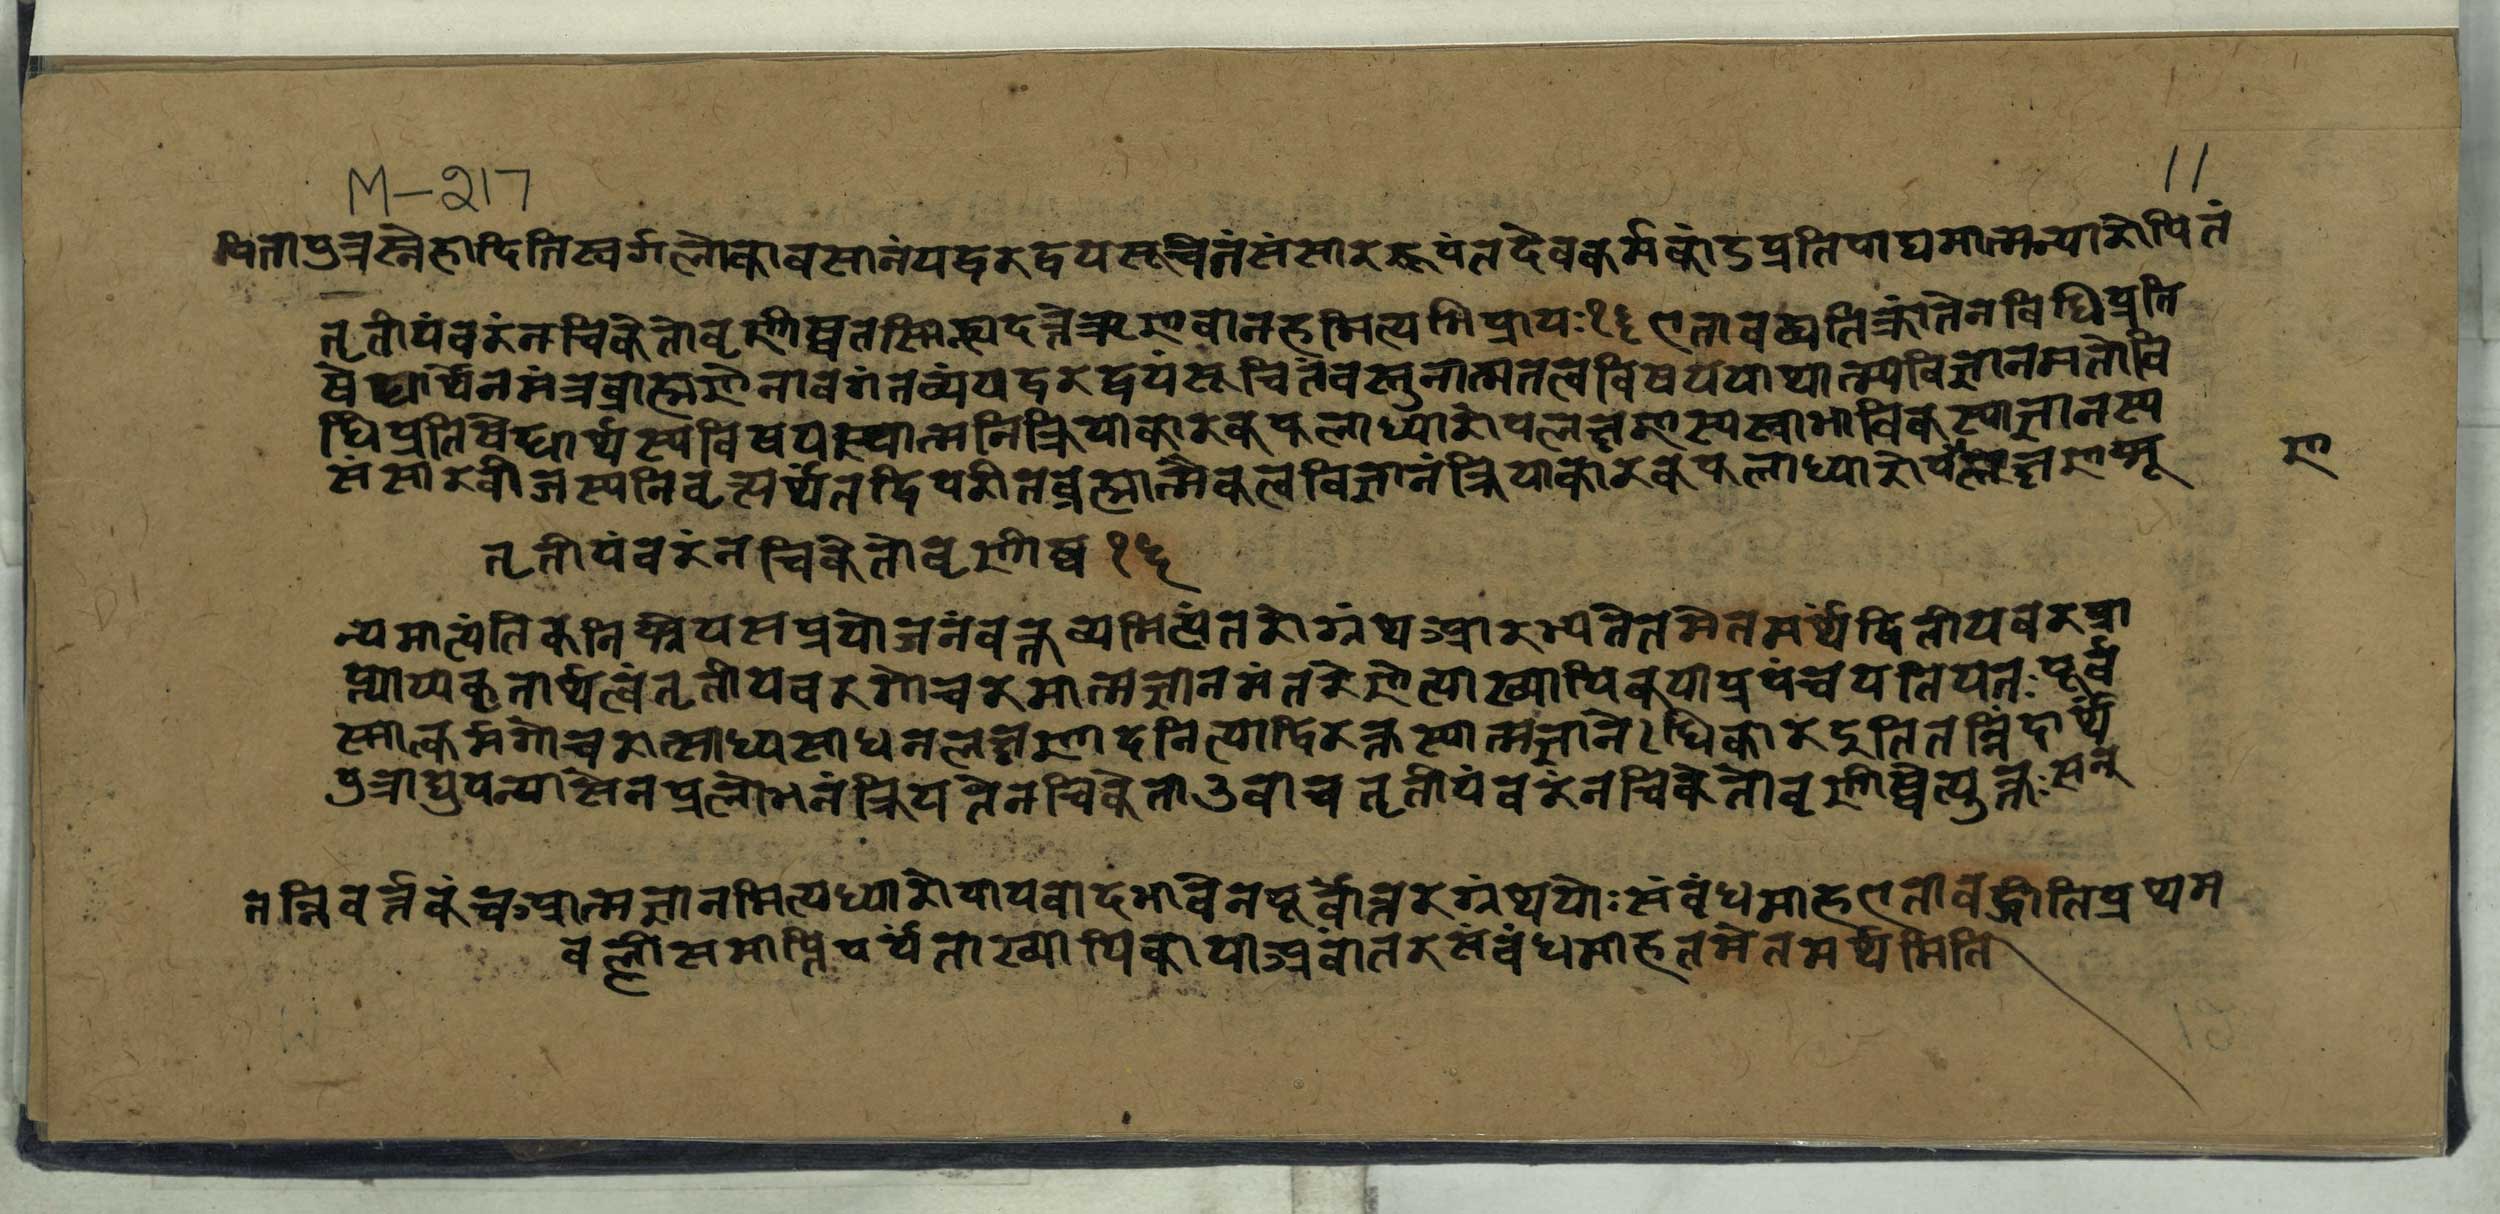 M-217
11
पितापुत्रस्नेहादितिस्वर्गलोकावसानंयद्वरद्वयसूचितंसंसाररूपंतदेवकर्मकांडप्रतिपाद्यमात्मन्यारोपितं
तृतीयंवरंनचिकेतोवृणीष्वतस्मिन्ह्यदत्तेऋणवानहमित्यभिप्रायः१९एतावद्ध्यतिक्रांतेनविधिप्रति
षेधार्थेनमंत्रब्राह्मणेनावगंतव्यंयद्वरद्वयंसूचितंवस्तुनात्मतत्वविषययाथात्म्यविज्ञानमतोवि
धिप्रतिषेधार्थस्यविषयस्यात्मनिक्रियाकारकफलाध्यारोपलक्षणस्यस्वाभाविकस्याज्ञानस्य
संसारबीजस्यनिवृत्त्यर्थंतद्विपरीतब्रह्मात्मैकत्वविज्ञानंक्रियाकारकफलाध्यारोपलक्षणशू
ण
तृतीयंवरंनचिकेतोवृणीष्व१९
न्यमात्यंतिकनिःश्रेयसप्रयोजनंवक्तव्यमित्युत्तरोग्रंथआरभ्यतेतमेतमर्थंद्वितीयवरप्रा
प्त्याप्यकृतार्थत्वंतृतीयवरगोचरमात्मज्ञानमंतरेणेत्याख्यायिकयाप्रपंचयतियतःपूर्व
स्मात्कर्मगोचरात्साध्यसाधनलक्षणादनित्याद्विरक्तस्यात्मज्ञानेऽधिकारइतितन्निंदार्थं
पुत्राद्युपन्यासेनप्रलोभनंक्रियतेनचिकेताउवाचतृतीयंवरंनचिकेतोवृणीष्वेत्युक्तःसन्
तन्निवर्तकंचआत्मज्ञानमित्यध्यारोपापवादभावेनपूर्वोत्तरग्रंथयोःसंबंधमाहएतावद्धीतिप्रथम
वल्लीसमाप्तिपर्यंताख्यायिकायाअवांतरसंबंधमाहतमेतमर्थमिति